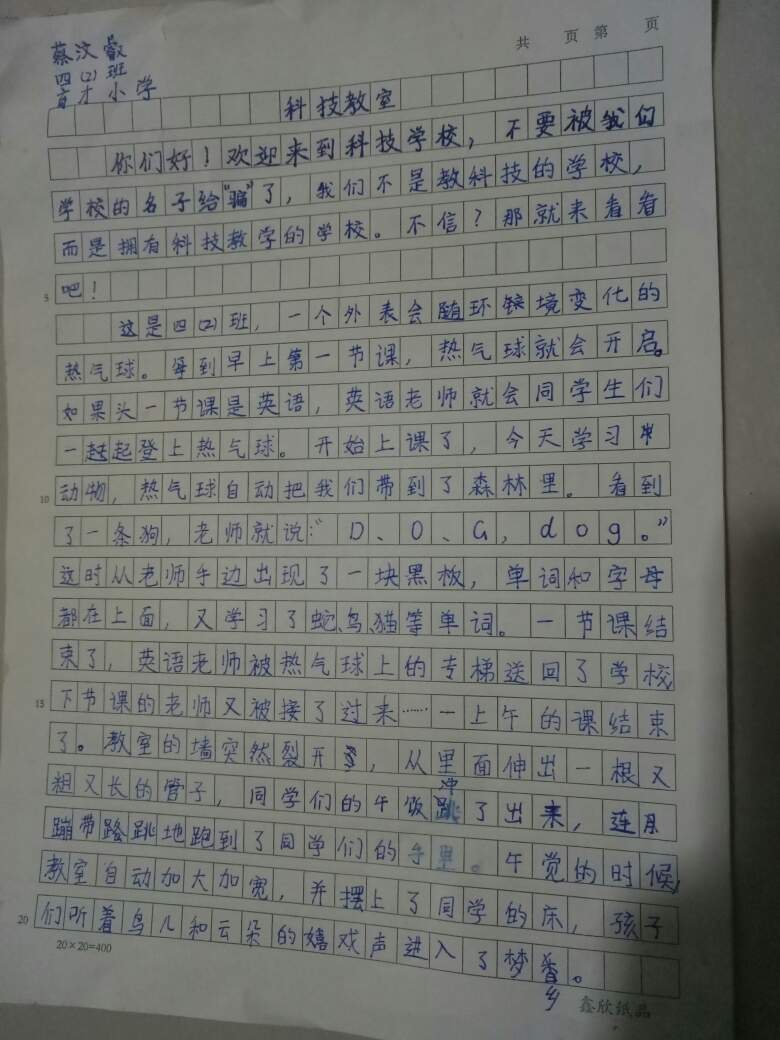 蔡汶叡
四(2)班
育才小学
共 页 第 页
科技教室
你们好！欢迎来到科技学校，不要被我们
学校的名子给"骗"了，我们不是教科技的学校，
而是拥有科技教学的学校。不信？那就来看看
5 吧！
这是四(2)班，一个外表会随环境变化的
热气球。每到早上第一节课，热气球就会开启。
如果头一节课是英语，英语老师就会同学生们
一起登上热气球。开始上课了，今天学习
10 动物，热气球自动把我们带到了森林里。看到
了一条狗，老师就说："D、O、G，dog。"
这时从老师手边出现了一块黑板，单词和字母
都在上面，又学习了蛇、鸟、猫等单词。一节课结
束了，英语老师被热气球上的专梯送回了学校
15 下节课的老师又被接了过来……一上午的课结束
了。教室的墙突然裂开，从里面伸出一根又
粗又长的管子，同学们的午饭冲了出来，连
蹦带跳地跑到了同学们的手里。午觉的时候，
教室自动加大加宽，并摆上了同学的床，孩子
20 们听着鸟儿和云朵的嬉戏声进入了梦乡。
20×20=400
鑫欣纸品